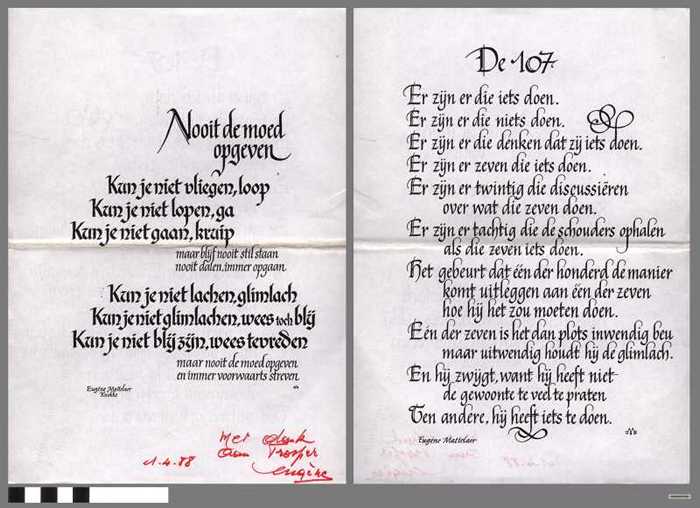 Nooit de moed
opgeven
Kun je niet vliegen, loop
Kun je niet lopen, ga
Kun je niet gaan, kruip
maar blijf nooit stil staan
nooit dalen, immer opgaan
Kun je niet lachen, glimlach
Kun je niet glimlachen, wees toch blij
Kun je niet blij zijn, wees tevreden
maar nooit de moed opgeven
en immer voorwaarts streven
Eugène Mattelaer
Met dank
aan Prosper
1.4.88
Eugène
De 107
Er zijn er die iets doen.
Er zijn er die niets doen.
Er zijn er die denken dat zij iets doen.
Er zijn er zeven die iets doen.
Er zijn er twintig die discussiëren
over wat die zeven doen.
Er zijn er tachtig die de schouders ophalen
als die zeven iets doen.
Het gebeurt dat één der honderd de manier
komt uitleggen aan één der zeven
hoe hij het zou moeten doen.
Eén der zeven is het dan plots inwendig beu
maar uitwendig houdt hij de glimlach.
En hij zwijgt, want hij heeft niet
de gewoonte te veel te praten
Ten andere, hij heeft iets te doen.
Eugène Mattelaer